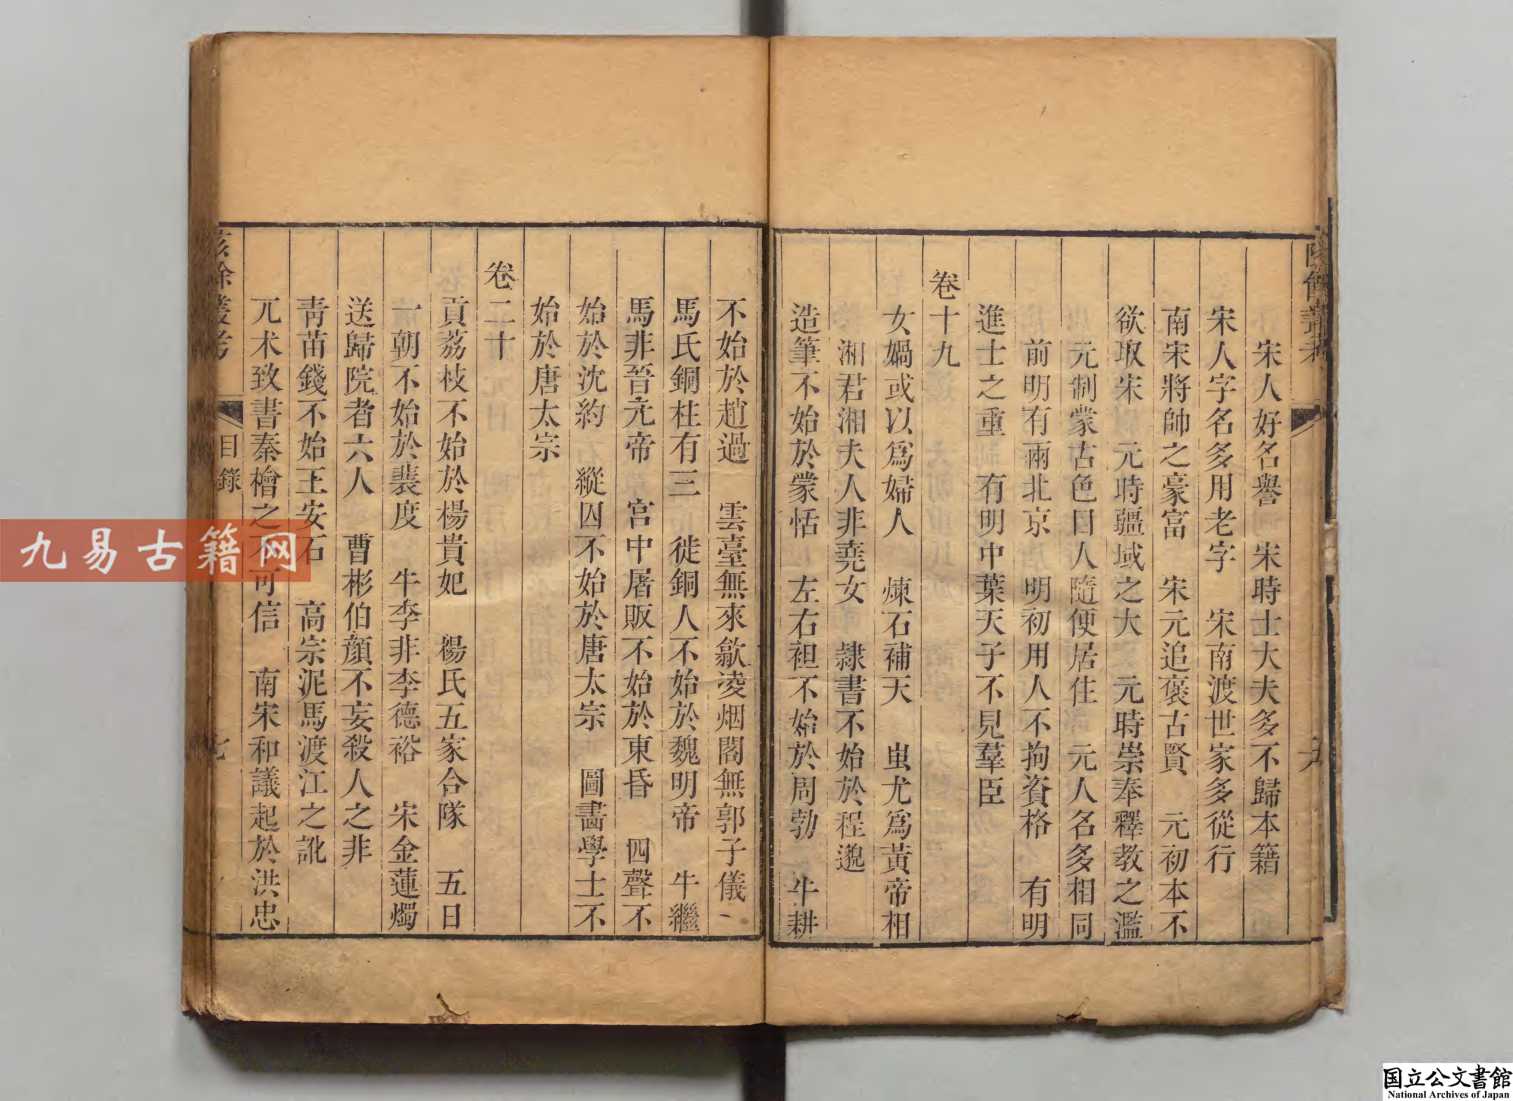 陔餘叢考
宋人好名譽　宋時士大夫多不歸本籍
宋人字名多用老字　宋南渡世家多從行
南宋將帥之豪富　宋元追褒古賢　元初本不
欲取宋　元時疆域之大　元時崇奉釋教之濫
元制蒙古色目人隨便居住　元人名多相同
前明有兩北京　明初用人不拘資格　有明
進士之重　有明中葉天子不見羣臣
卷十九
女媧或以爲婦人　煉石補天　蚩尤爲黃帝相
湘君湘夫人非堯女　隸書不始於程邈
造筆不始於蒙恬　左右袒不始於周勃　牛耕
不始於趙過　雲臺無來歙凌烟閣無郭子儀
馬氏銅柱有三　徙銅人不始於魏明帝　牛繼
馬非晉元帝　宮中屠販不始於東昏　四聲不
始於沈約　縱囚不始於唐太宗　圖畵學士不
始於唐太宗
卷二十
貢荔枝不始於楊貴妃　楊氏五家合隊　五日
一朝不始於裴度　牛李非李德裕　宋金蓮燭
送歸院者六人　曹彬伯顏不妄殺人之非
靑苗錢不始王安石　高宗泥馬渡江之訛
兀术致書秦檜之不可信　南宋和議起於洪忠
陔餘叢考
目錄
七
九易古籍网
国立公文書館
National Archives of Japan